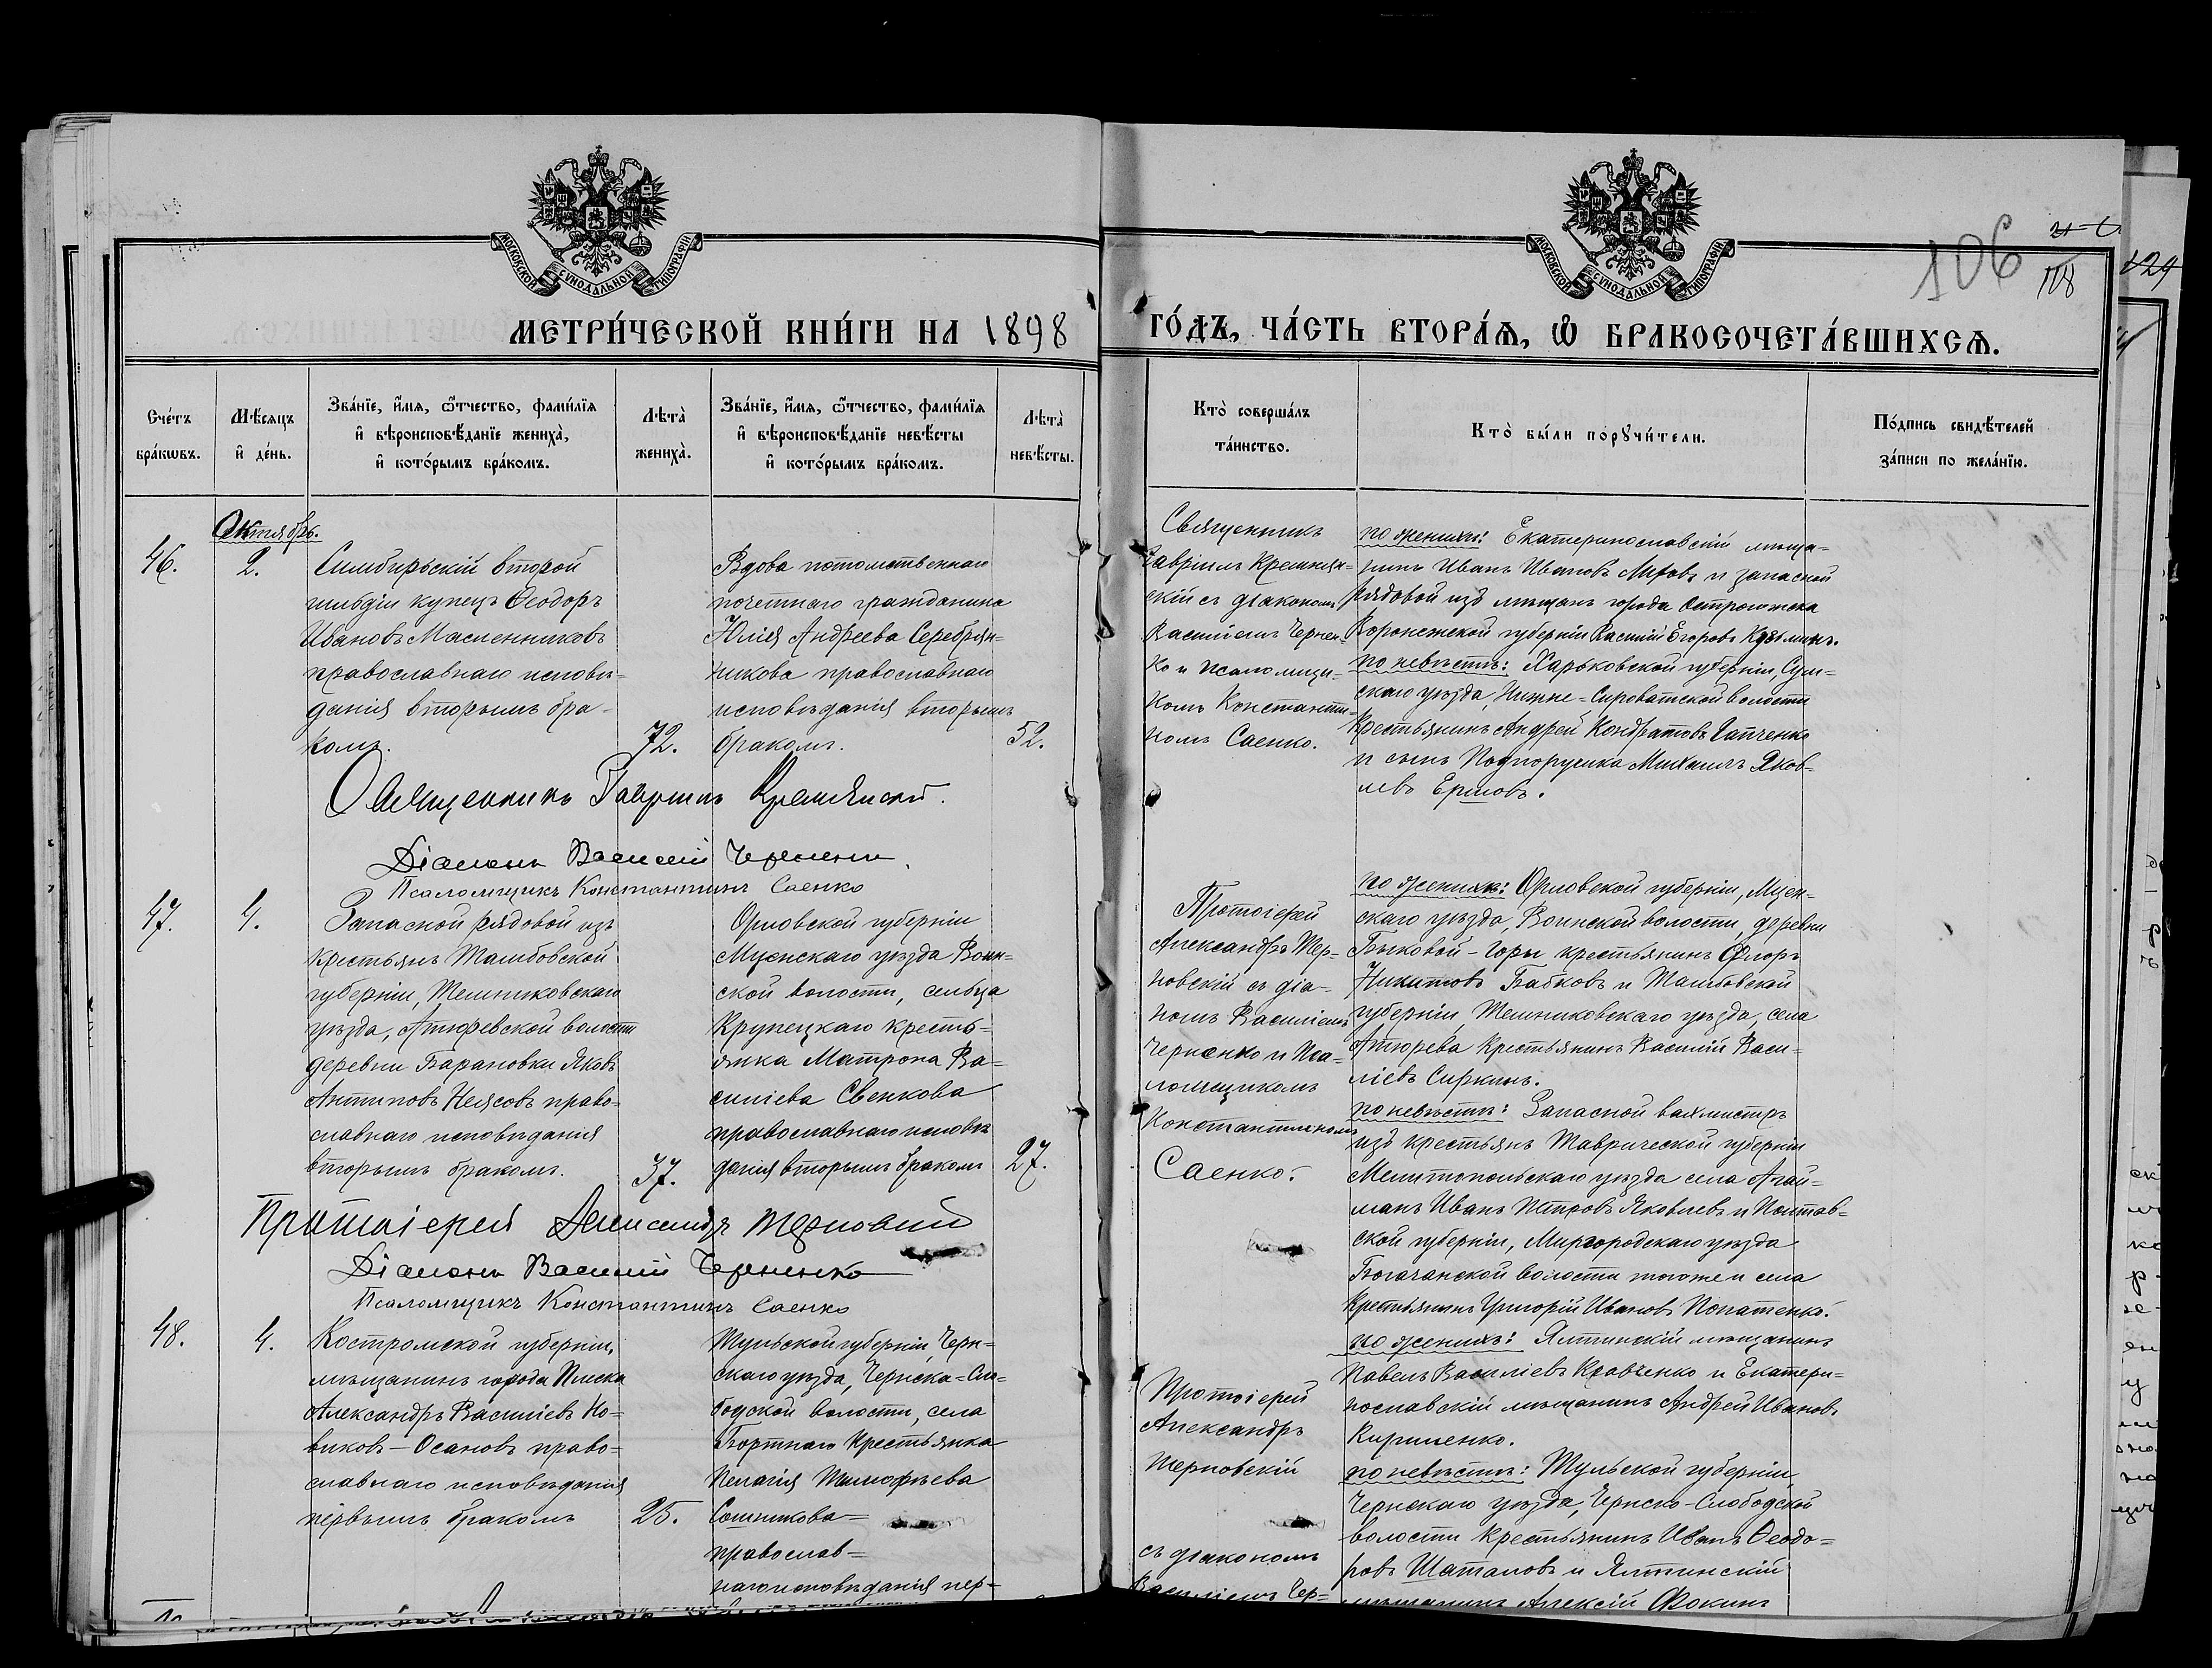 МОСКОВСКОЙ СѴНОДАЛЬНОЙ ТИПОГРАФІИ
МОСКОВСКОЙ СѴНОДАЛЬНОЙ ТИПОГРАФІИ
106
118
129
МЕТРИ́ЧЕСКОЙ КНИ́ГИ НА 1898
ГО́ДЪ, ЧА́СТЬ ВТОРА́Ѧ, Ѽ БРАКОСОЧЕТА́ВШИХСѦ.
Сче́тъ
бра́кѡвъ.
Мѣ́сѧцъ
и҆ де́нь.
Зва́нїе, и҆́мѧ, ѻ҆́тчество, фами́лїѧ
и҆ вѣроисповѣ́данїе жениха̀,
и҆ кото́рымъ бра́комъ.
Лѣта̀
жениха̀.
Зва́нїе, и҆́мѧ, ѻ҆́тчество, фами́лїѧ
и҆ вѣроисповѣ́данїе невѣ́сты
и҆ кото́рымъ бра́комъ.
Лѣта̀
невѣ́сты.
Кто̀ соверша́лъ
та́инство.
Кто̀ бы́ли порꙋчи́тели.
По́дпись свидѣ́телей
за́писи по жела́нїю.
Октябрь.
46.
2.
Симбирскій второй
гильдіи купецъ Ѳеодоръ
Ивановъ Масленниковъ
православнаго исповѣ=
данія вторымъ бра-
комъ.
72.
Вдова потомственнаго
почетнаго гражданина
Юлія Андреева Серебрян-
никова православнаго
исповѣданія вторымъ
бракомъ.
52.
Священникъ
Гавріилъ Кремян-
скій съ діакономъ
Василіемъ Чернен-
ко и псаломщи-
комъ Константи-
номъ Саенко.
по женихѣ: Екатеринославскій мѣща=
нинъ Иванъ Ивановъ и запасной
рядовой изъ мѣщанъ города Острогожска
Воронежской губерніи Василій Егоровъ Кузьминъ.
по невѣстѣ: Харьковской губерніи, Сум=
скаго уѣзда, Нижне=Сыроватской волости
крестьянинъ Андрей Кондратовъ Гапченко
и сынъ Подпоручика Михаилъ Яков-
левъ Ершовъ.
Священникъ Гавріилъ Кремянскій.
Діаконъ Василій Черненко
Псаломщикъ Константинъ Саенко
47.
4.
Запасной рядовой изъ
крестьянъ Тамбовской
губерніи, Темниковскаго
уѣзда, Атюревской волости
деревни Барановки Яковъ
Антиповъ право=
славнаго исповѣданія
вторымъ бракомъ.
37.
Орловской губерніи
Мценскаго уѣзда Воин=
ской волости, сельца
Крупецкаго кресть=
янка Матрона Ва=
силіева Свенкова
православнаго исповѣ
данія вторымъ бракомъ
27.
Протоіерей
Александръ Тер=
новскій съ діа-
номъ Василіемъ
Черненко и Пса-
ломщикомъ
Константиномъ
Саенко.
по женихѣ: Орловской губерніи, Мцен=
скаго уѣзда, Воинской волости, деревни
Быковой-горы крестьянинъ Флоръ
Никитовъ Бабковъ и Тамбовской
губерніи, Темниковскаго уѣзда, села
Атюрева крестьянинъ Василій Васи=
ліевъ Сиркинъ.
по невѣстѣ: Запасной вахмистръ
изъ крестьянъ Таврической губерніи
Мелитопольскаго уѣзда села Агай=
манъ Иванъ Петровъ Яковлевъ и Полтав=
ской губерніи, Миргородскаго уѣзда
Богачанской волости тогоже и села
крестьянинъ Григорій Ивановъ Лопатенко.
Протоіерей Александръ Терновскій
Діаконъ Василій Черненко
Псаломщикъ Константинъ Саенко
48.
4.
Костромской губерніи,
мѣщанинъ города Плеса
Александръ Василіевъ Но=
виковъ-Осановъ право=
славнаго исповѣданія
первымъ бракомъ
25.
Тульской губерніи, Черн=
скаго уѣзда, Чернска=Сло=
бодской волости, села
Бортнаго крестьянка
Пелагія Тимофѣева
Сошникова=
православ=
наго исповѣданія пер=
Протоіерей
Александръ
Терновскій
съ діакономъ
Василіемъ Чер=
по женихѣ: Ялтинскій мѣщанинъ
Павелъ Василіевъ Кравченко и Екатери=
нославскій мѣщанинъ Андрей Ивановъ
Кириленко.
по невѣстѣ: Тульской губерніи,
Чернскаго уѣзда, Чернско-Слободской
волости крестьянинъ Иванъ Ѳеодо=
ровъ Шаталовъ и Ялтинскій
мѣщанинъ Алексій Фокинъ